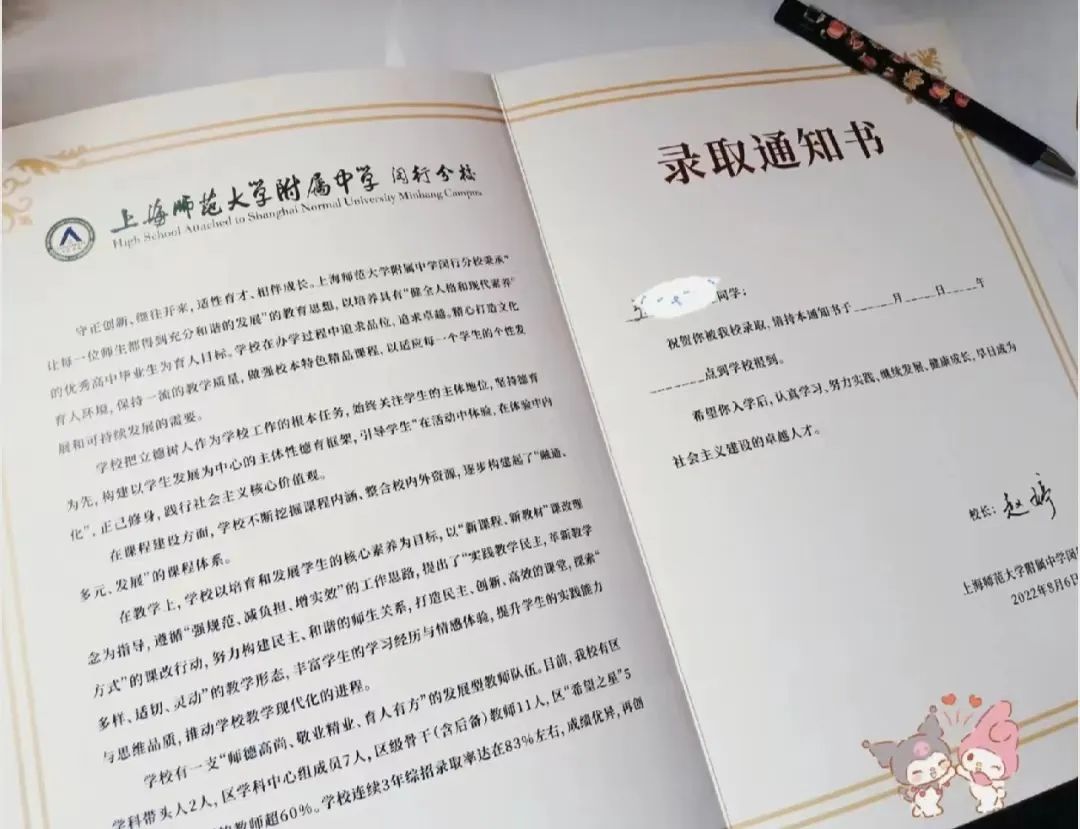 上海师范大学附属中学 闵行分校
High School Attached to Shanghai Normal University Minhang Campus
守正创新、继往开来，适性育才、相伴成长。上海师范大学附属中学闵行分校秉承“
让每一位师生都得到充分和谐的发展”的教育思想，以培养具有“健全人格和现代素养”
的优秀高中毕业生为育人目标。学校在办学过程中追求品位，追求卓越。精心打造文化
育人环境，保持一流的教学质量，做强校本特色精品课程，以适应每一个学生的个性发
展和可持续发展的需要。
学校把立德树人作为学校工作的根本任务，始终关注学生的主体地位，坚持德育
为先，构建以学生发展为中心的主体性德育框架，引导学生“在活动中体验，在体验中内
化”，正己修身，践行社会主义核心价值观。
在课程建设方面，学校不断挖掘课程内涵、整合校内外资源，逐步构建起了“融通、
多元、发展”的课程体系。
在教学上，学校以培育和发展学生的核心素养为目标，以“新课程、新教材”课改理
念为指导，遵循“强规范、减负担、增实效”的工作思路，提出了“实践教学民主，革新教学
方式”的课改行动，努力构建民主、和谐的师生关系，打造民主、创新、高效的课堂，探索“
多样、适切、灵动”的教学形态，丰富学生的学习经历与情感体验，提升学生的实践能力
与思维品质，推动学校教学现代化的进程。
学校有一支“师德高尚、敬业精业、育人有方”的发展型教师队伍。目前，我校有区
学科带头人2人，区学科中心组成员7人，区级骨干（含后备）教师11人，区“希望之星”5
教师超60%。学校连续3年综招录取率达在83%左右，成绩优异，再创
录取通知书
同学：
祝贺你被我校录取，请持本通知书于____月____日____午
______点到学校报到。
希望你入学后，认真学习、努力实践、继续发展、健康成长，早日成为
社会主义建设的卓越人才。
校长：赵婷
上海师范大学附属中学闵
2022年8月6日